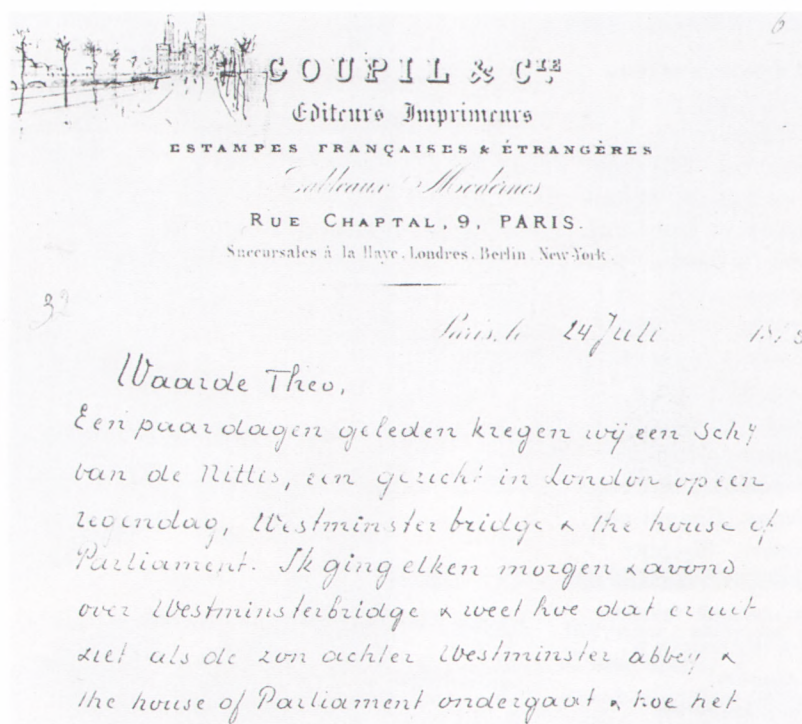 6
GOUPIL & CIE
Editeurs Imprimeurs
ESTAMPES FRANÇAISES & ÉTRANGÈRES
Tableaux Modernes
RUE CHAPTAL, 9, PARIS.
Succursales à la Haye, Londres, Berlin, New-York.
32
Paris, le 24 Juli 187
Waarde Theo,
Een paar dagen geleden kregen wij een schij
van de Nittis, een gezicht in London op een
regendag, Westminster bridge & the house of
Parliament. Ik ging elken morgen & avond
over Westminsterbridge & weet hoe dat er uit
ziet als de zon achter Westminster abbey &
the house of Parliament ondergaat & hoe het